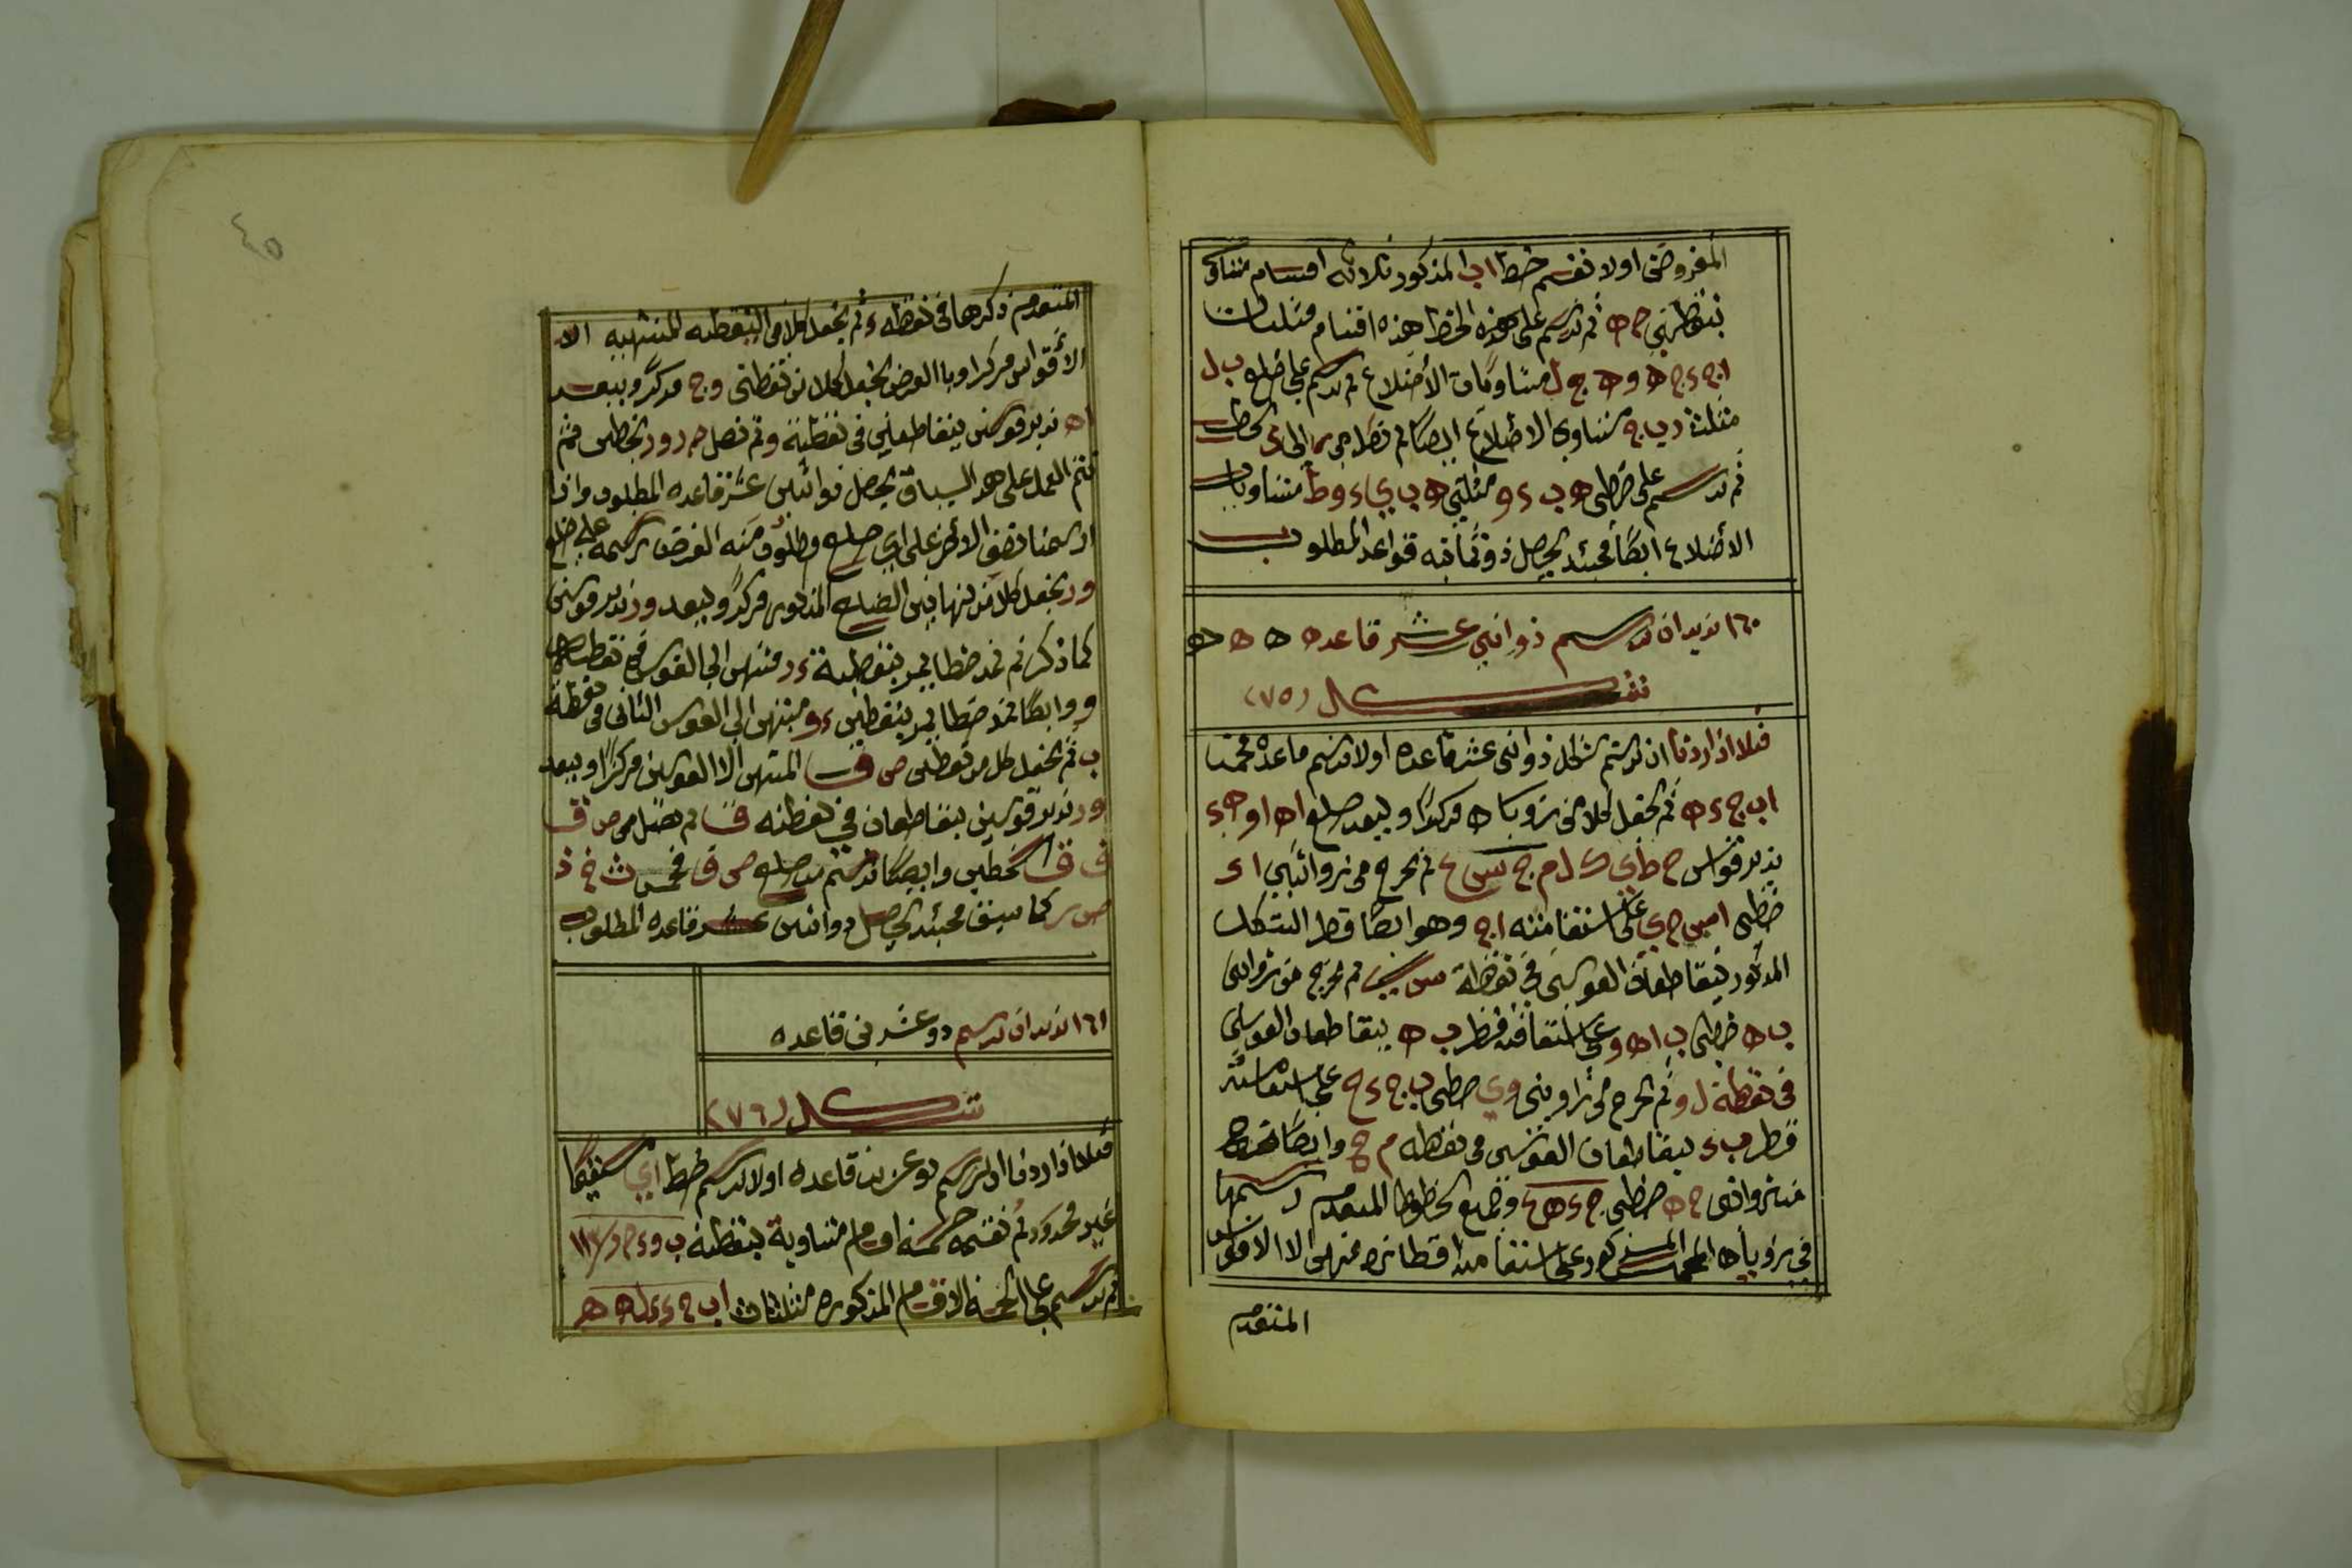 المفروضى اولا نقسم خط اب المذكور ثلاثه اقسام متساوى
بنقطتى ج ه ثم نرسم على هذه الخط هذه اقسام مثلثات
ا ج ء ج ه و ه ج ل متساويات الأضلاع ثم نرسم على ضلع ب ل
مثلث د ب ج متساوى الاضلاع ايضًا ثم نصل من الى كخط
ثم نرسم على خطى ه ب ء و مثلثى ه ب ى ء و ط متساويات
الأضلاع ايضًا فحينئذ يحصل ذو ثمانيه قواعد المطلوب
١٦٠ نريد ان نرسم ذو اثنى عشر قاعده ه ه ه
شكل (٧٥)
فلا اذا اردنا ان نرسم شكل ذو اثنى عشر قاعده اولا نرسم قاعده مخمسا
اب ج ء ه ثم نجعل كلا من زويا ه مركزًا وببعد ضلع اه او ه ء
ندير قواس ح ط ى ك ل م ج س ع ثم نخرج من زوايتى ا ء
خطى ا س ح ى على استقامته ا ج وهو ايضًا قطر الشكل
المذكور يتقاطعان القوسى فى نقطة س ى ثم نخرج من زوايتى
ب ه خطى ب ا ه و على استقامة قطر ب ه يتقاطعان القوسين
فى نقطة ل و ثم نخرج من زاويتى و ى خطى ب ج ء ح على استقامته
قطر ب ء يتقاطعان القوسى فى نقطه م ح وايضًا نخرج
من زوايتى ج ه خطى ج ء ه ع وجميع الخطوط المتقدم رسمها
فى زويا ه المخمس المذكور وعلى استقامة اقطاره منتهى الا الاقواس
المتقدم
٤٥
المتقدم ذكرها فى نقطه ء ثم نجعل كلا من النقطيه المنتهيه الا
الأقواس مركزا وبا العرض نجعل كلا من نقطتى و ج مركزًا وببعد
ا ه ندير قوسين يتقاطعلين فى نقطة و ثم نصل ح ر و ر بخطين فثم
نتم العمل على هد السياق يحصل ذو اثنين عشر قاعده المطلوب واذا
ارسمنا نصف الاخر على اى ضلع مطلوب منه الغرض نرسمه على ضلع
و ر نجعل كلا من نهايتين الضلع المذكور مركزًا وببعد و ر ندير قوسين
كما ذكر ثم نمد خطا يمر بنقطية ء ر منتهى الى القوس فى نقطة ص
و و ايضًا نمد خطا يمر بنقطين ء و منتهى الى القوس الثانى فى نقطة
ب ثم نجعل كل من نقطين ص ف المنتهى الا القوسين مركزًا وببعد
و ر ندير قوسين يتقاطعان فى نقطته ق ثم نصل من ص ق
ف ق كخطين وايضًا نرسم من ضلع ص ق مخمس ث خ ذ
ص ر كما سبق فحينئذ يحصل ذو اثنين عشر قاعده المطلوب
١٦١ نريد ان نرسم ذو عشرنى قاعده
شكل (٧٦)
فلا اذا اردنا ان نرسم ذو عشرين قاعده اولا نرسم خط اى مستقيمًا
غير محدود ثم نقسمه خمسة اقسام متساوية بنقطتة ب و ء ح و
ثم نرسم على الخمسة الاقسام المذكوره مثلثات ا ب ج ء ى ك ه ه